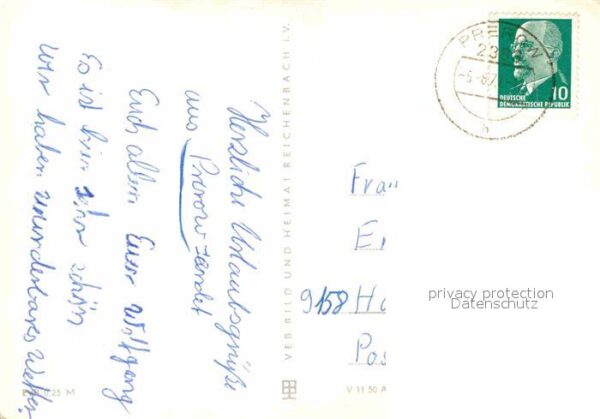 Herzliche Urlaubsgrüße
aus Prerow sendet
Euch allen Euer Wolfgang
Es ist hier sehr schön
Wir haben wunderbares Wetter.
0,25 M
VEB BILD UND HEIMAT REICHENBACH I. V.
V 11 50 A
PREROW
23
10
DEUTSCHE
DEMOKRATISCHE REPUBLIK
b
Frau
9158
Pos
privacy protection
Datenschutz